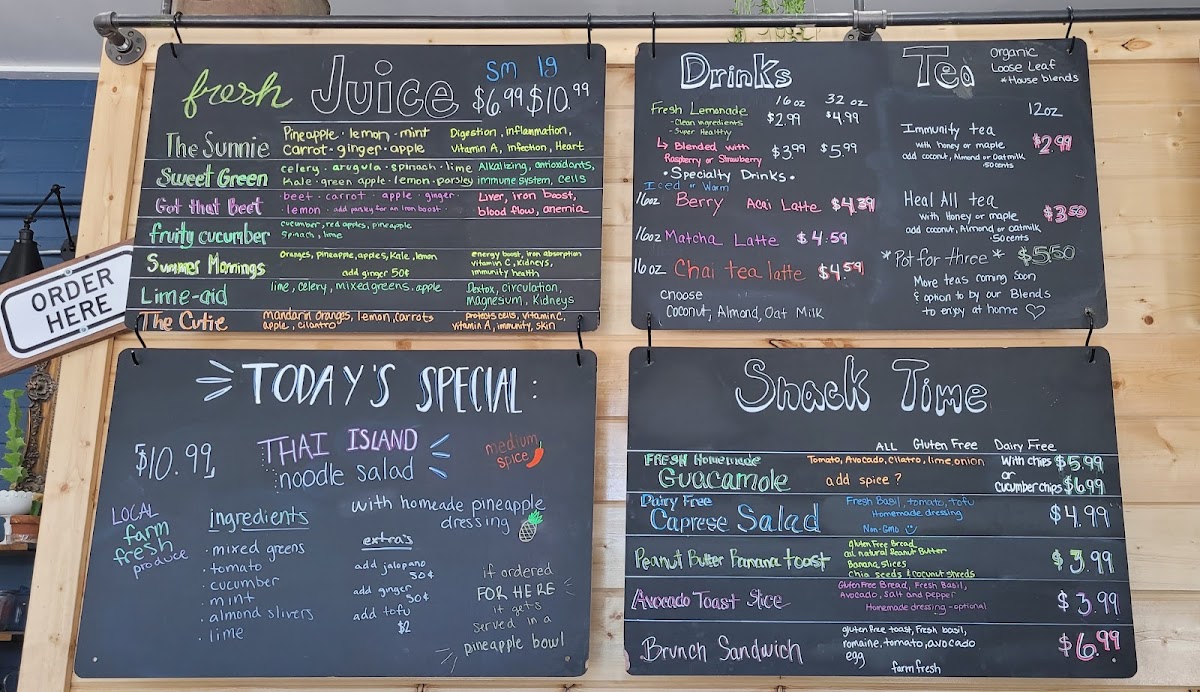 fresh Juice
sm lg
$6.99 $10.99
The Sunnie
Pineapple · lemon · mint
Carrot · ginger · apple
Digestion, inflammation,
Vitamin A, infection, Heart
Sweet Green
celery · arugula · spinach · lime
Kale · green apple · lemon · parsley
Alkalizing, antioxidants,
immune system, cells
Got that Beet
beet · carrot · apple · ginger ·
lemon · add parsley for an iron boost ·
Liver, iron boost,
blood flow, anemia
fruity cucumber
cucumber, red apples, pineapple
spinach, lime
Summer Mornings
Oranges, pineapple, apples, Kale, lemon
add ginger 50¢
energy boost, iron absorption
vitamin C, kidneys,
immunity health
Lime-aid
lime, celery, mixed greens, apple
Dextox, circulation,
magnesum, Kidneys
The Cutie
mandarin oranges, lemon, carrots
apple, cilantro
protects cells, vitamin C,
vitamin A, immunity, skin
ORDER
HERE
Drinks
16oz 32 oz
Fresh Lemonade
$2.99 $4.99
- Clean ingredients
- Super Healthy
↳ Blended with
Raspberry or Strawberry
$3.99 $5.99
• Specialty Drinks •
Iced or Warm
16oz Berry Acai Latte $4.39
16oz Matcha Latte $4.59
16 oz Chai tea latte $4.59
choose
coconut, Almond, Oat Milk
Tea
organic
Loose Leaf
*House blends
12oz
Immunity tea
with honey or maple
add coconut, Almond or Oatmilk
50 cents
$2.99
Heal All tea
with Honey or maple
add coconut, Almond or oatmilk
·50 cents
$3.50
*Pot for three* $5.50
More teas coming soon
& option to by our Blends
to enjoy at home ♡
TODAY'S SPECIAL:
$10.99
THAI ISLAND
noodle salad
medium
spice
with homeade pineapple
dressing
LOCAL
farm
fresh
produce
ingredients
· mixed greens
· tomato
· cucumber
· mint
· almond slivers
· lime
extra's
add jalopano
50¢
add ginger
50¢
add tofu
$2
if ordered
FOR HERE
it gets
served in a
pineapple bowl
Snack Time
ALL Gluten Free Dairy Free
FRESH Homemade
Guacamole
Tomato, Avocado, cilatro, lime, onion
add spice ?
With chips $5.99
or
cucumber chips $6.99
Dairy Free
Caprese Salad
Fresh Basil, tomato, tofu
Homemade dressing
Non-GMO
$4.99
Peanut Butter Banana toast
Gluten Free Bread
all natural Peanut Butter
Banana slices
Chia seeds & coconut shreds
$3.99
Avocado Toast Slice
Gluten Free Bread, Fresh Basil,
Avocado, Salt and pepper
Homemade dressing - optional
$3.99
Brunch Sandwich
gluten free toast, Fresh basil,
romaine, tomato, avocado
egg
farm fresh
$6.99